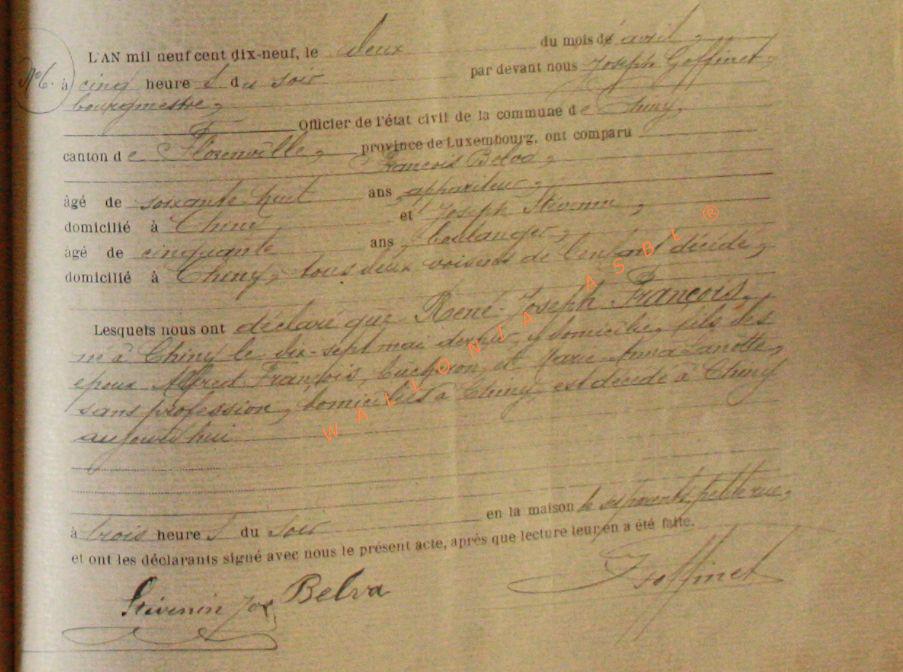 N° 6.
L'AN mil neuf cent dix-neuf, le deux du mois d'avril,
à cinq heures du soir par devant nous Joseph Goffinet,
bourgmestre,
Officier de l'état civil de la commune de Chiny,
canton de Florenville, province de Luxembourg, ont comparu
François Belva,
âgé de soixante huit ans, appariteur,
domicilié à Chiny et Joseph Stévenin,
âgé de cinquante ans, boulanger,
domicilié à Chiny, tous deux voisins de l'enfant décédé,
Lesquels nous ont déclaré que René-Joseph François,
né à Chiny le dix-sept mai dernier, y domicilié, fils des
époux Alfred François, bucheron, et Marie-Anna Lanotte,
sans profession, domiciliés à Chiny, est décédé à Chiny
aujourd'hui
à trois heures du soir en la maison de ses parents, petite rue,
et ont les déclarants signé avec nous le présent acte, après que lecture leur en a été faite.
Stévenin Jos Belva J Goffinet
WALLONIA ASBL ®